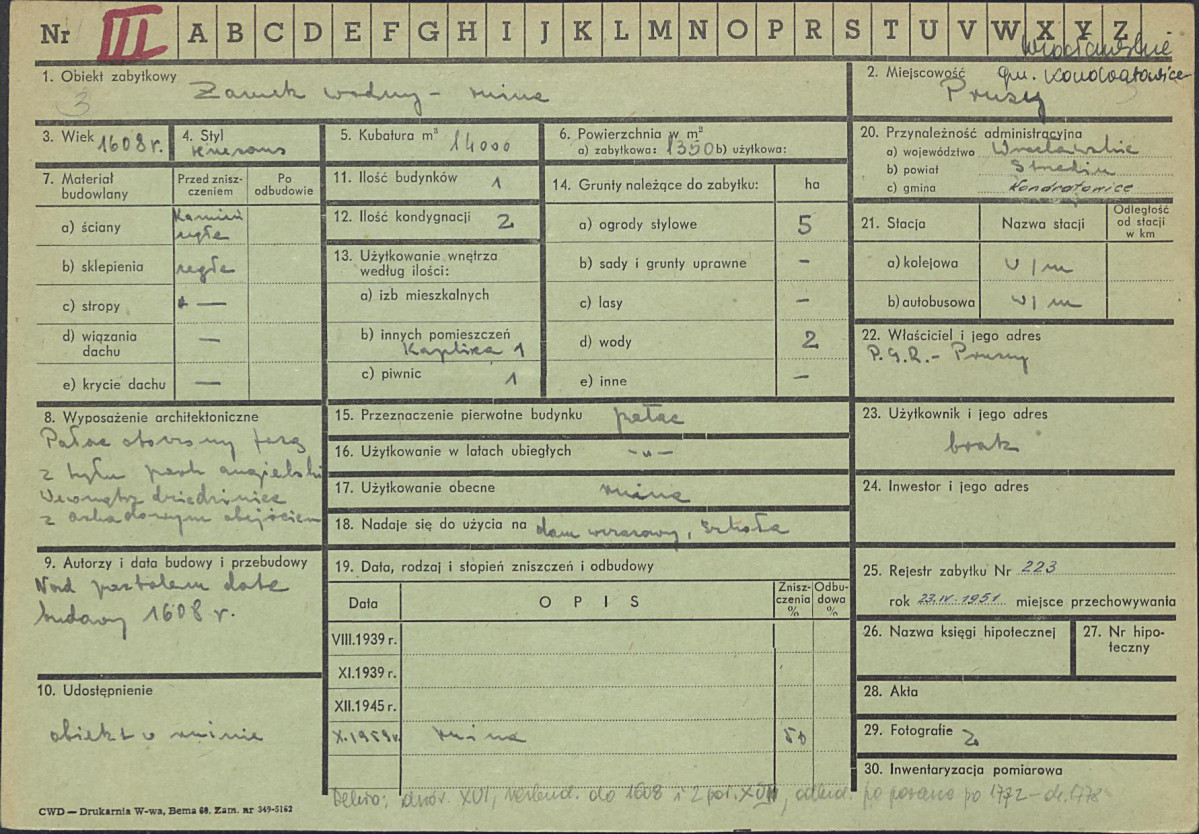 Nr III A B C D E F G H I J K L M N O P R S T U V W X Y Z
Wrocławskie
1. Obiekt zabytkowy
Zamek wodny – ruina
3
2. Miejscowość gm. Kondratowice
Prusy
3. Wiek 1608 r.
4. Styl
renesans
5. Kubatura m³ 14000
6. Powierzchnia w m²
a) zabytkowa: 1350 b) użytkowa:
7. Materiał budowlany
Przed zniszczeniem
Po odbudowie
a) ściany
kamień
cegła
b) sklepienia cegła
c) stropy —
d) wiązania dachu —
e) krycie dachu —
8. Wyposażenie architektoniczne
Pałac otoczony fosą
z tyłu park angielski
Wewnątrz dziedziniec
z arkadowym obejściem
9. Autorzy i data budowy i przebudowy
Nad portalem data
budowy 1608 r.
10. Udostępnienie
obiekt w ruinie
11. Ilość budynków 1
12. Ilość kondygnacji 2
13. Użytkowanie wnętrza
według ilości:
a) izb mieszkalnych
b) innych pomieszczeń
Kaplica 1
c) piwnic 1
14. Grunty należące do zabytku: ha
a) ogrody stylowe 5
b) sady i grunty uprawne –
c) lasy –
d) wody 2
e) inne –
15. Przeznaczenie pierwotne budynku pałac
16. Użytkowanie w latach ubiegłych –„–
17. Użytkowanie obecne ruina
18. Nadaje się do użycia na dom wczasowy, szkoła
19. Data, rodzaj i stopień zniszczeń i odbudowy
Data OPIS Zniszczenia % Odbudowa %
VIII.1939 r.
XI.1939 r.
XII.1945 r.
X.1959 r. ruina 50
20. Przynależność administracyjna
a) województwo Wrocławskie
b) powiat Strzelin
c) gmina Kondratowice
21. Stacja Nazwa stacji Odległość od stacji w km
a) kolejowa w/m
b) autobusowa w/m
22. Właściciel i jego adres
P.G.R. – Prusy
23. Użytkownik i jego adres
brak
24. Inwestor i jego adres
25. Rejestr zabytku Nr 223
rok 23.IV.1951 miejsce przechowywania
26. Nazwa księgi hipotecznej
27. Nr hipoteczny
28. Akta
29. Fotografie 2
30. Inwentaryzacja pomiarowa
dwór. XVI, do 1608 i 2 poł. XVII, odbud. po pożarze po 1772 – ok. 1778
CWD — Drukarnia W-wa, Bema 60. Zam. nr 349-5162